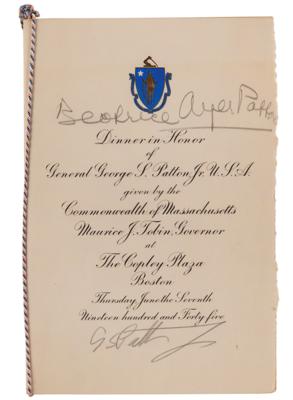 Beatrice Ayer Patton
Dinner in Honor
of
General George S. Patton, Jr. U.S.A.
given by the
Commonwealth of Massachusetts
Maurice J. Tobin, Governor
at
The Copley Plaza
Boston
Thursday June the Seventh
Nineteen hundred and Forty five
G S Patton Jr